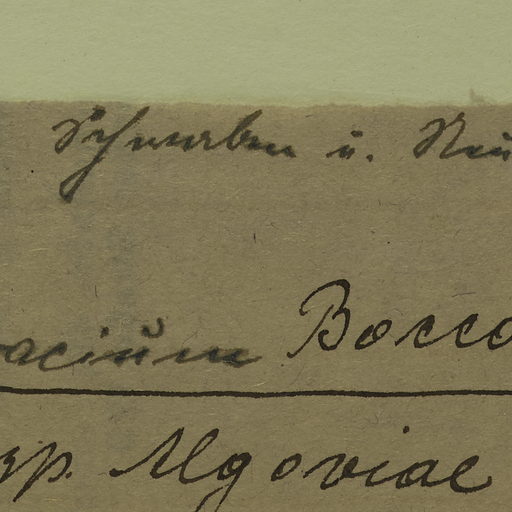 Schwaben u. Neu
acium Bocco
sp. Algoviae